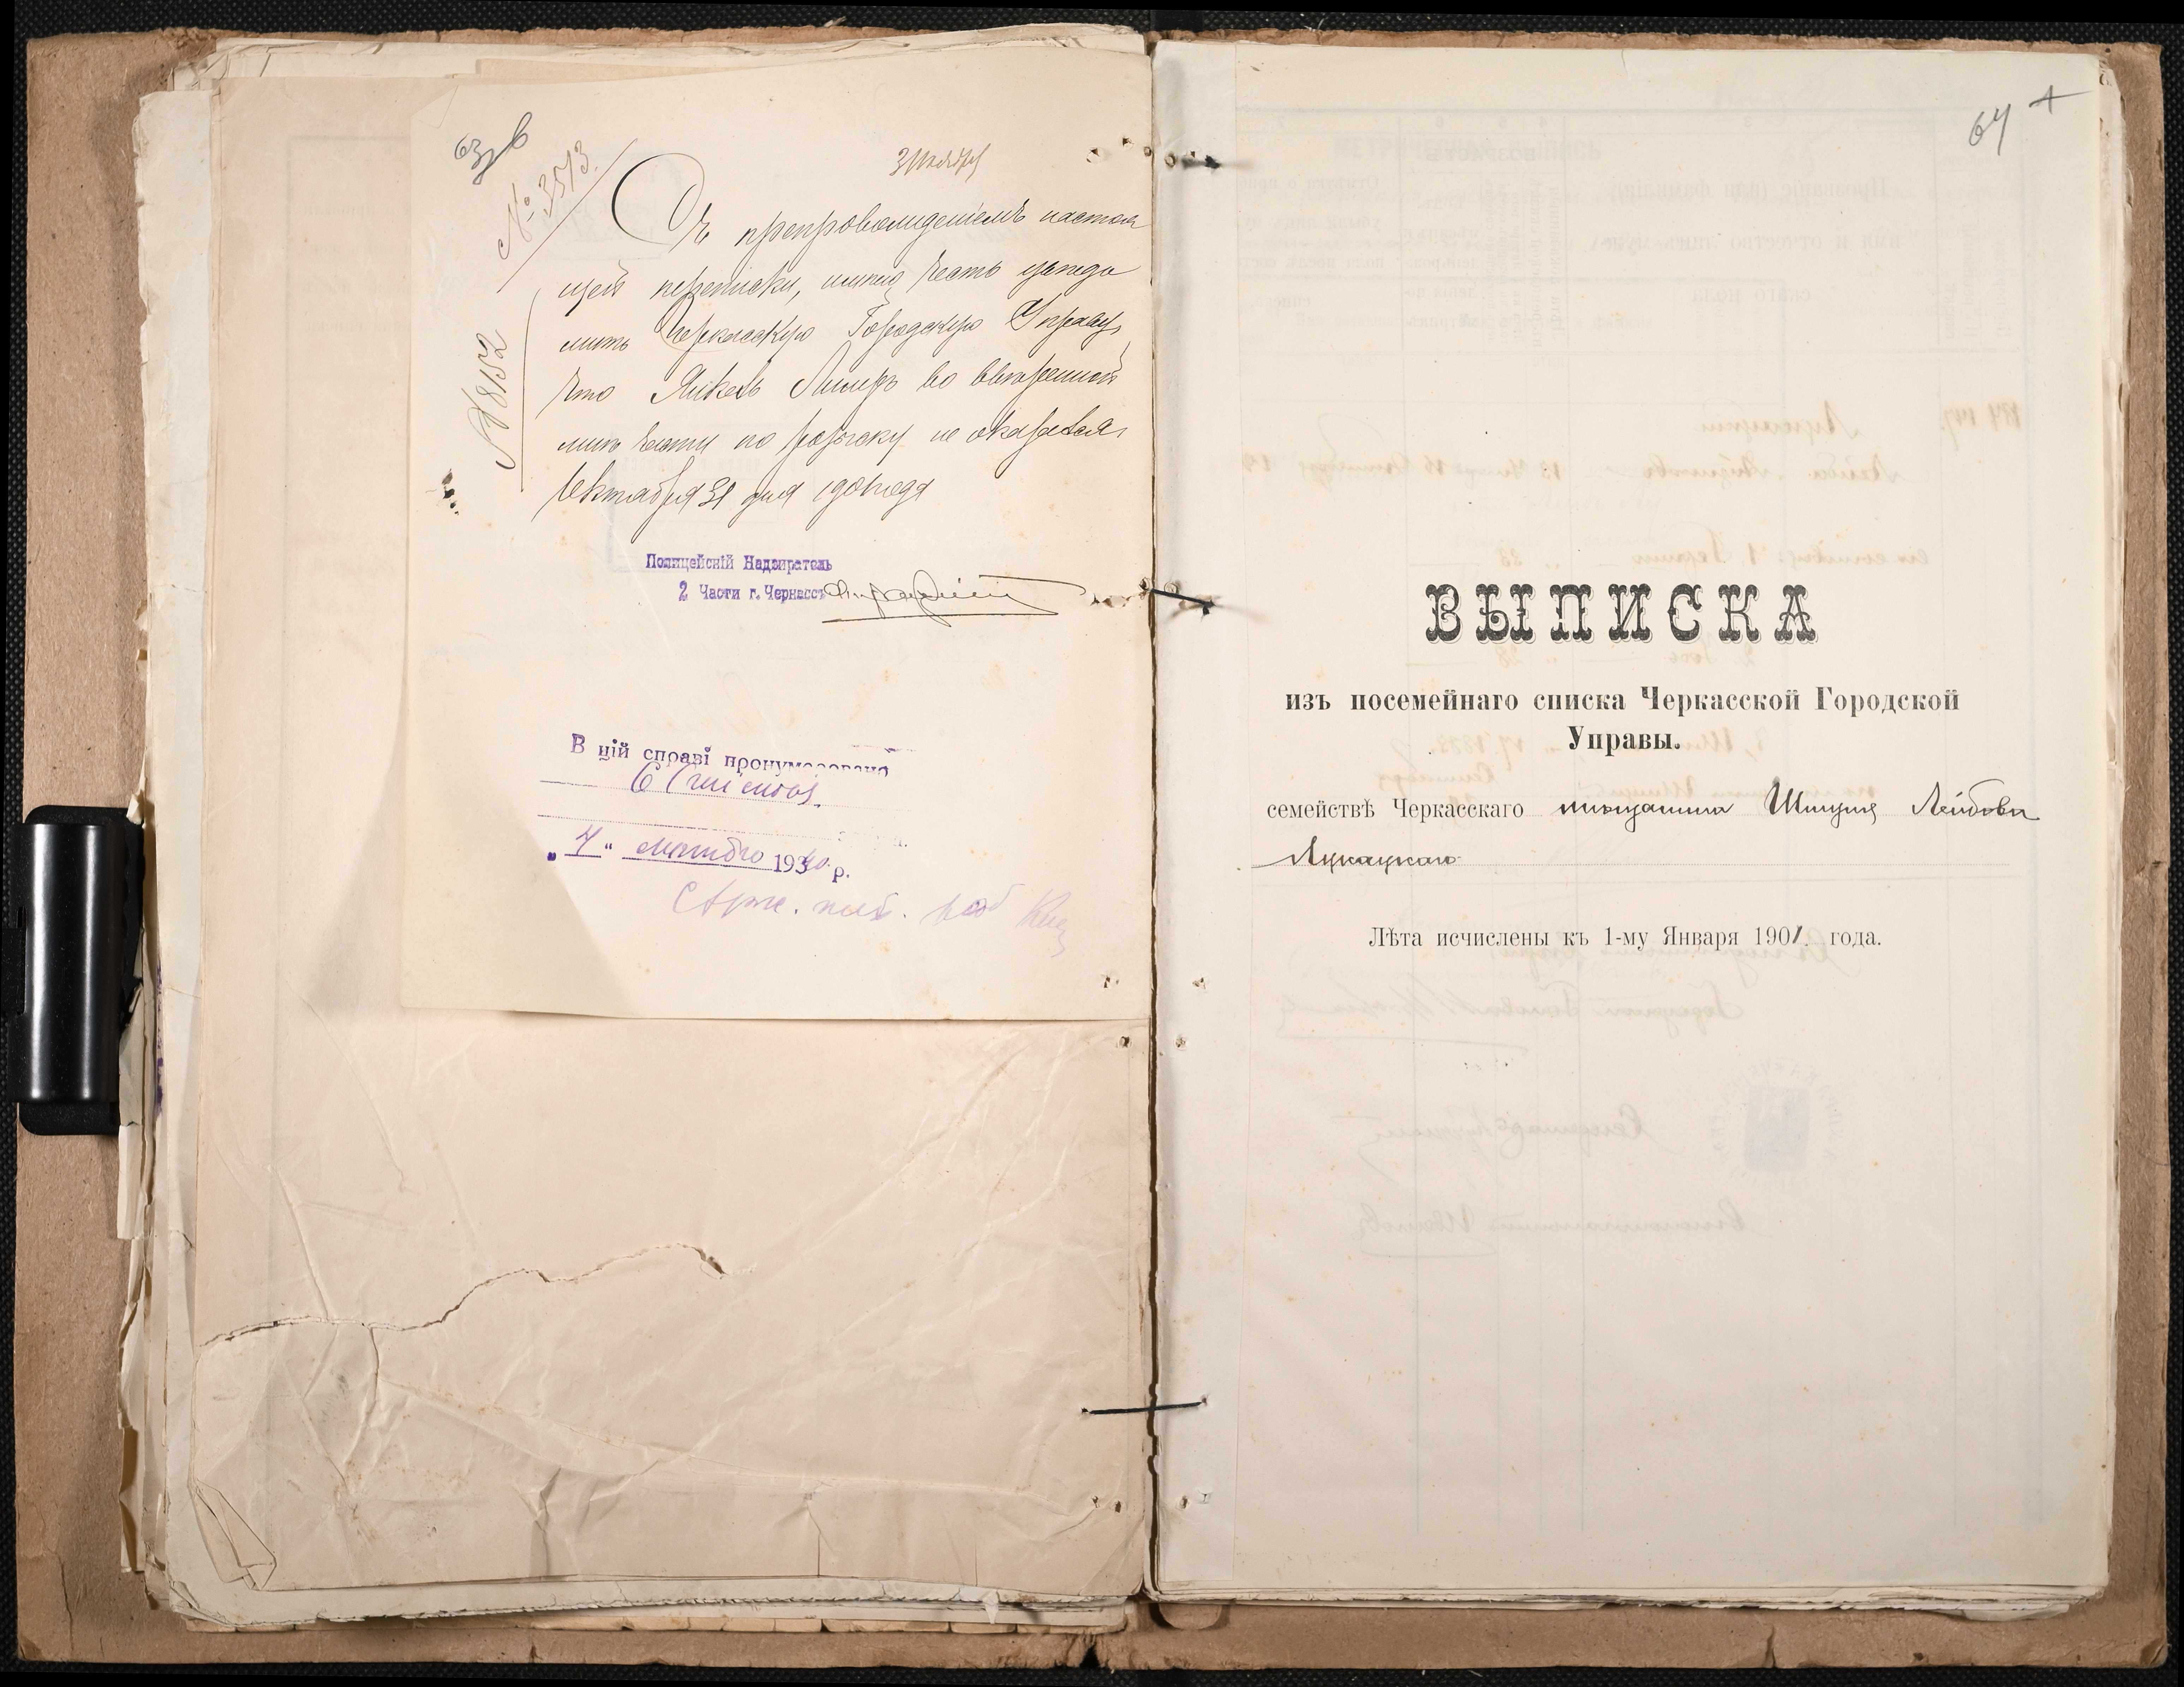 63 в
№ 3573.
№ 8152
Съ препровожденіемъ настоя
щей переписки, имѣю честь увѣдо
мить Черкасскую Городскую Управу,
что Янкель во ввѣренной
мнѣ части по розыску не оказался,
Октября 31 дня года
Полицейскій Надзиратель
2 Части г. Черкассъ
В цій справі пронумеровано
„ 4 “ 1940 р.
Арх.
64
ВЫПИСКА
изъ посемейнаго списка Черкасской Городской
Управы.
семействѣ Черкасскаго мѣщанина Шмуля Лейбова
Лукацкаго
Лѣта исчислены къ 1-му Января 1901. года.